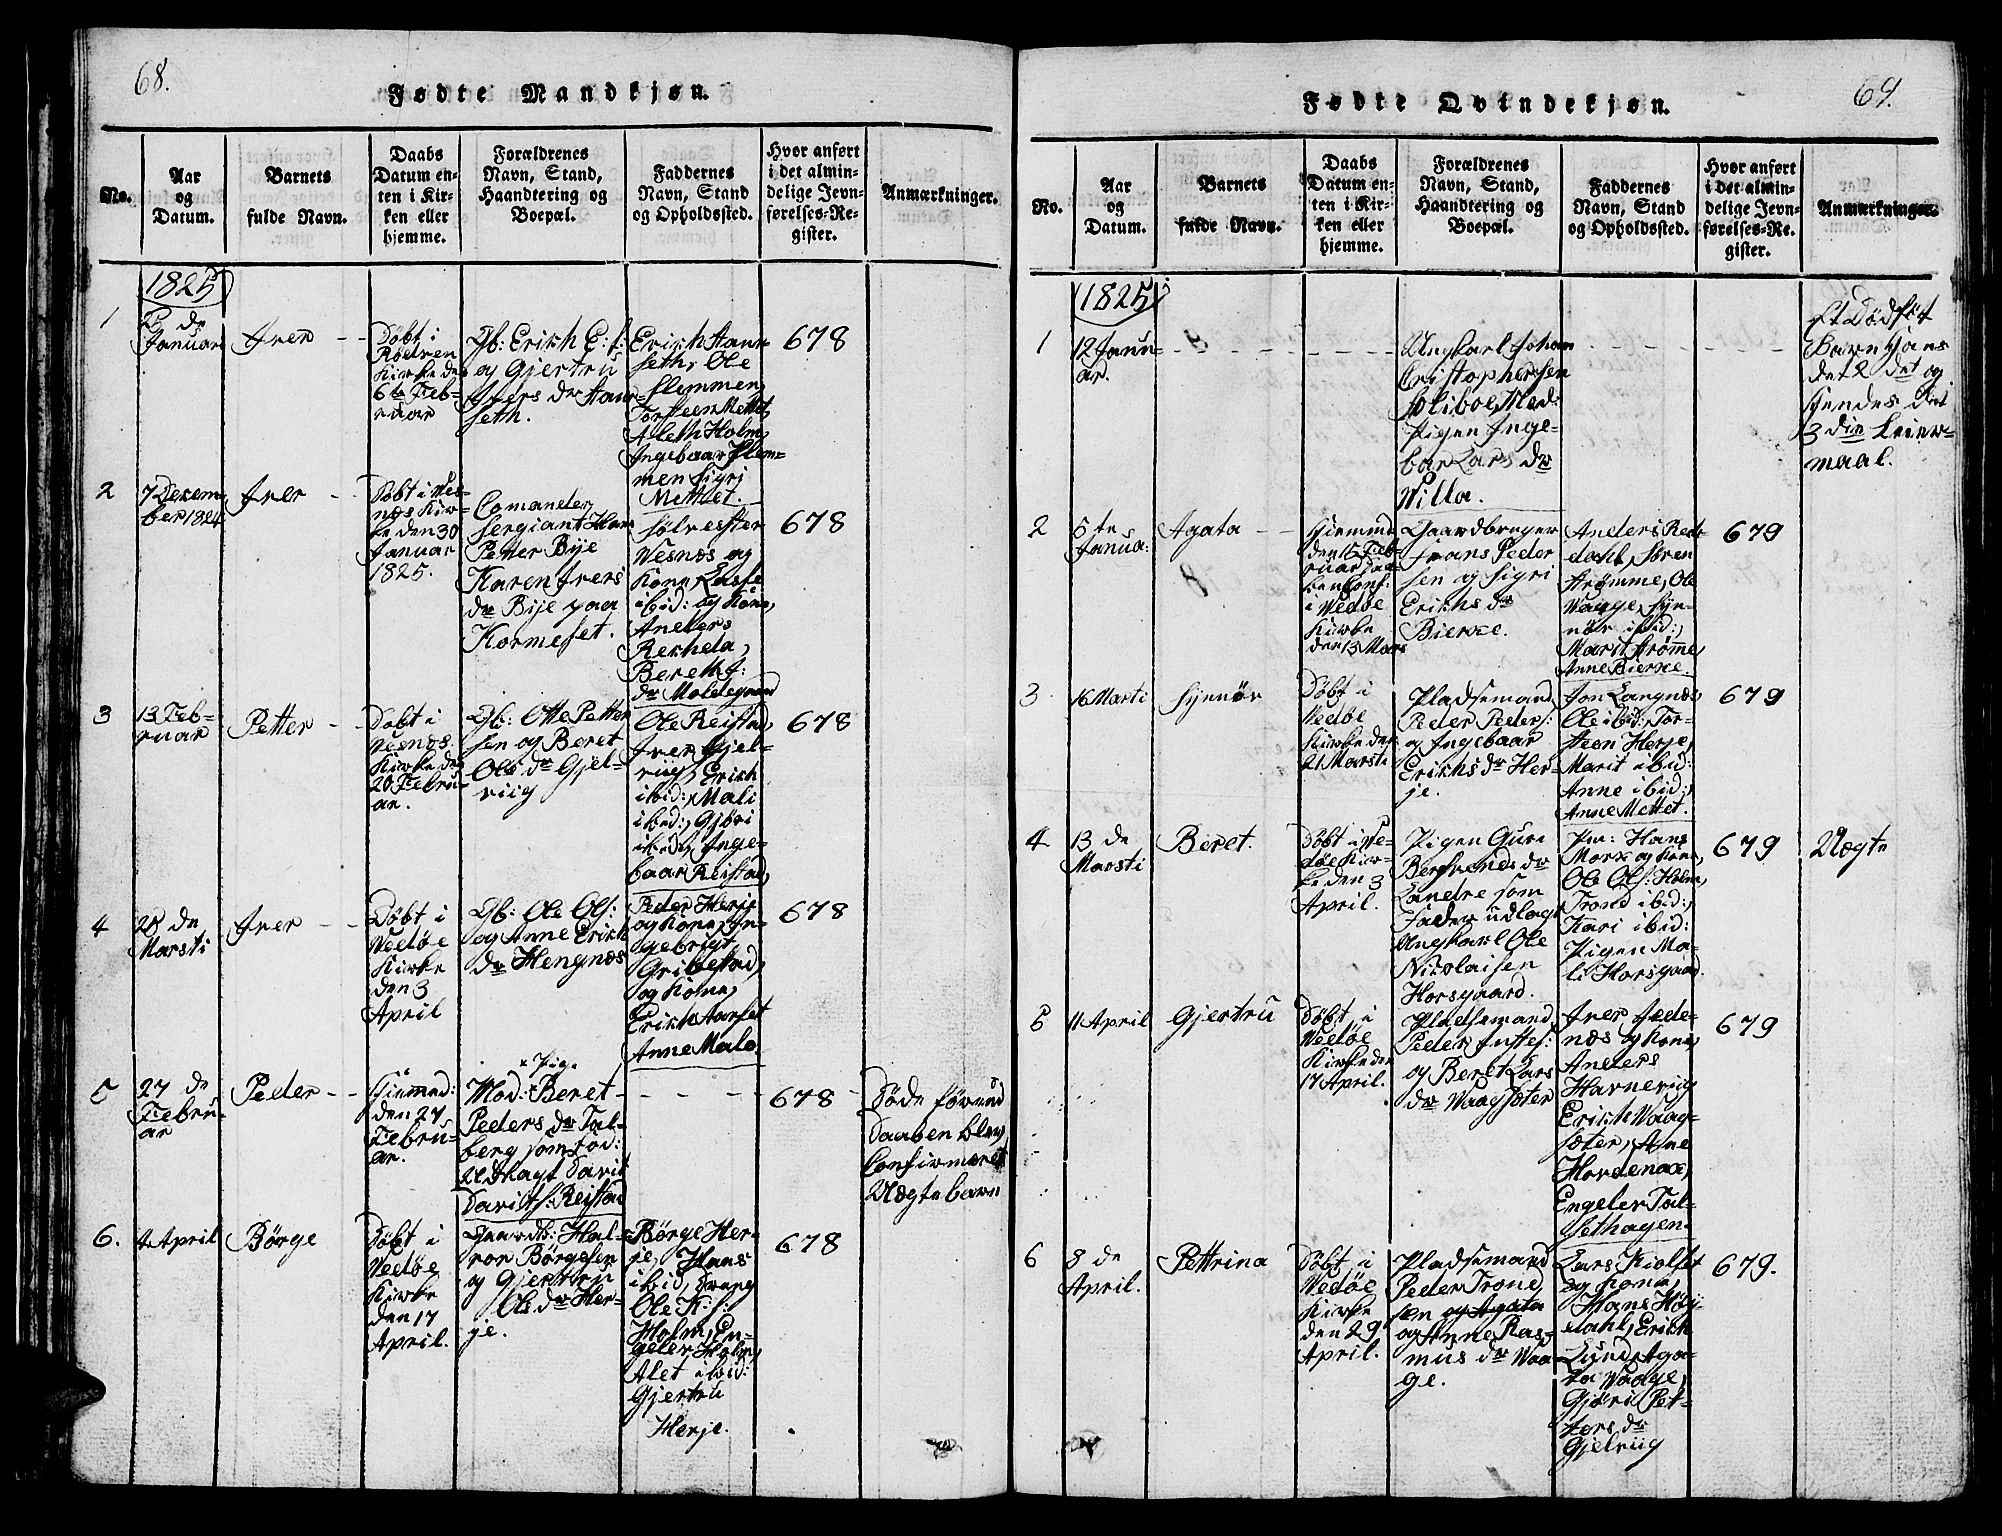 68.
Fødte Mandkjøn.
No.
Aar
og
Datum.
Barnets
fulde Navn.
Daabs
Datum en-
ten i Kir-
ken eller
hjemme.
Forældrenes
Navn, Stand,
Haandtering og
Boepæl.
Faddernes
Navn, Stand
og Opholdssted.
Hvor anført
i det almin-
delige Jevn-
førelses-Re-
gister.
Anmærkninger.
1825
1
de
Januar
Iver
Døbt i
Kirke den
6te Feb-
ruar
Gb: Erich E:s:
og Gjertru
Ivers dr Haur-
seth.
Erich Haur-
seth, Ole
Flemmen,
Torsteen Mettet,
Aleth Holm,
Ingebaar Flem-
men Sigri
Mettet.
678
2
7 Decem-
ber 1824
Iver
Døbt i Ves-
næs Kir-
ke den 30
Januar
1825.
Comander
Sergiant Hans
Peder Bije
Karen Ivers
dr Bije paa
Kormeset.
Sølvester
Vesnæs og
Kone, Lasse
ibid: og Kone,
Anders
Rekdela,
Bereth J:
dr Moldegaard
678
3
13 Feb-
ruar
Petter
Døbt i
Vesnæs
Kirke den
20 Febru-
ar.
Gb: Otte Petter-
sen og Beret
Ole dr Gjel-
viig
Ole Reistad,
Iver Gjel-
viig, Erich
ibid:, Mali
ibid:, Gjøri
ibid, Inge-
baar Reistad,
678
4
28 de
Marsti
Iver
Døbt i
Vedøe
Kirke
den 3
April
Gb: Ole Ols:
og Anne Erich
dr Hengnæs
Peder Herje
og Kone, In-
gebrigt
Gribestad,
og Kone,
Erich Aarset
Anne Malo.
678
5
27 de
Febru-
ar
Peder
Hiemed:
den 27
Febru-
ar.
× Pige
Mod:× Beret
Peders dr Tal-
berg som fød:
Udlagt David
Davids: Reistad
678
Døde førend
Daaben blev
Confirmeret
Uægte barn
6.
4 April
Børge
Døbt i
Vedøe
Kirke
den 17
April.
Gaardb: Hal-
vor Børgesen
og Gjertru
Ole dr Her-
je.
Børge Her-
je, Hans
ibid, Dreng
Ole K:s:
Holm, En-
geler Holm,
Alet ibid:
Gjertru
Herje.
678
69.
Fødte Qvindekjøn.
No.
Aar
og
Datum.
Barnets
fulde Navn.
Daabs
Datum en-
ten i Kir-
ken eller
hjemme.
Forældrenes
Navn, Stand,
Haandtering og
Boepæl.
Faddernes
Navn, Stand
og Opholdssted.
Hvor anført
i det almin-
delige Jevn-
førelses-Re-
gister.
Anmærkninger.
1825
1
12 Janu-
ar.
Ungkarl Johan
Cristophersen
Soliboe, Med
Pigen Inge-
bar Lars dr
Villa.
Et Dødføt
Barn hans
det 2det og
hendes det
3die Leier-
maal.
2
5te
Janua:
Agata
Hiemme
den 15 Feb-
ruar Daa-
ben Conf:
i Vedøe
Kirke
den 13 Mars
Gaardbruger
Frans Peder-
sen og Sigri
Erichs dr
Bierke.
Anders Rek-
dahl, Søren
Strømme, Ole
Vaage, Syn-
nør ibid:,
Marit Strømme,
Anne Bierke.
679
3
16 Marsti
Synnør
Døbt i
Vedøe
Kirke den
21 Marsti
Pladsemand
Peder Peders:
og Ingebaar
Erichs dr Her-
je.
Jon Langnæs,
Ole ibid: Tor-
steen Herje,
Marit ibid:
Anne ibid:,
Anne Mettet.
679
4
13 de
Marsti
Beret.
Døbt i Ve-
døe Kir-
ke den 3
April.
Pigen Guri
Berhends dr
Landre som
Fader udlagt
Ungkarl Ole
Nicolaisen
Horsgaard.
Pm: Hans
Mork og Kone,
Ole Ols: Holm,
Trond ibid:,
Kari ibid:
Pigen Ma-
li Horsgaard.
679
Uægte
5
11 April
Gjertru
Døbt i
Vedøe
Kirke den
17 April.
Pladsemand
Peder Justes:
og Beret Lars
dr Vaagsæter
Iver
næs og Kone,
Anders
Havnevig
Erich Vaag-
sæter, Ane
Hordenæs,
Engeler Tal-
sethagen.
679
6
8 de
April.
Pettrina
Døbt i
Vedøe
Kirke
den 29
April.
Pladsemand
Peder Trond-
sen og Agata
og Anne Ras-
mus dr Vaa-
ge.
Lars Kiolset
og Kone,
Hans Høg-
dahl, Erich
Lund, Aga-
ta Vaage,
Gjøri Pet-
ters dr
Gjelviig
679.